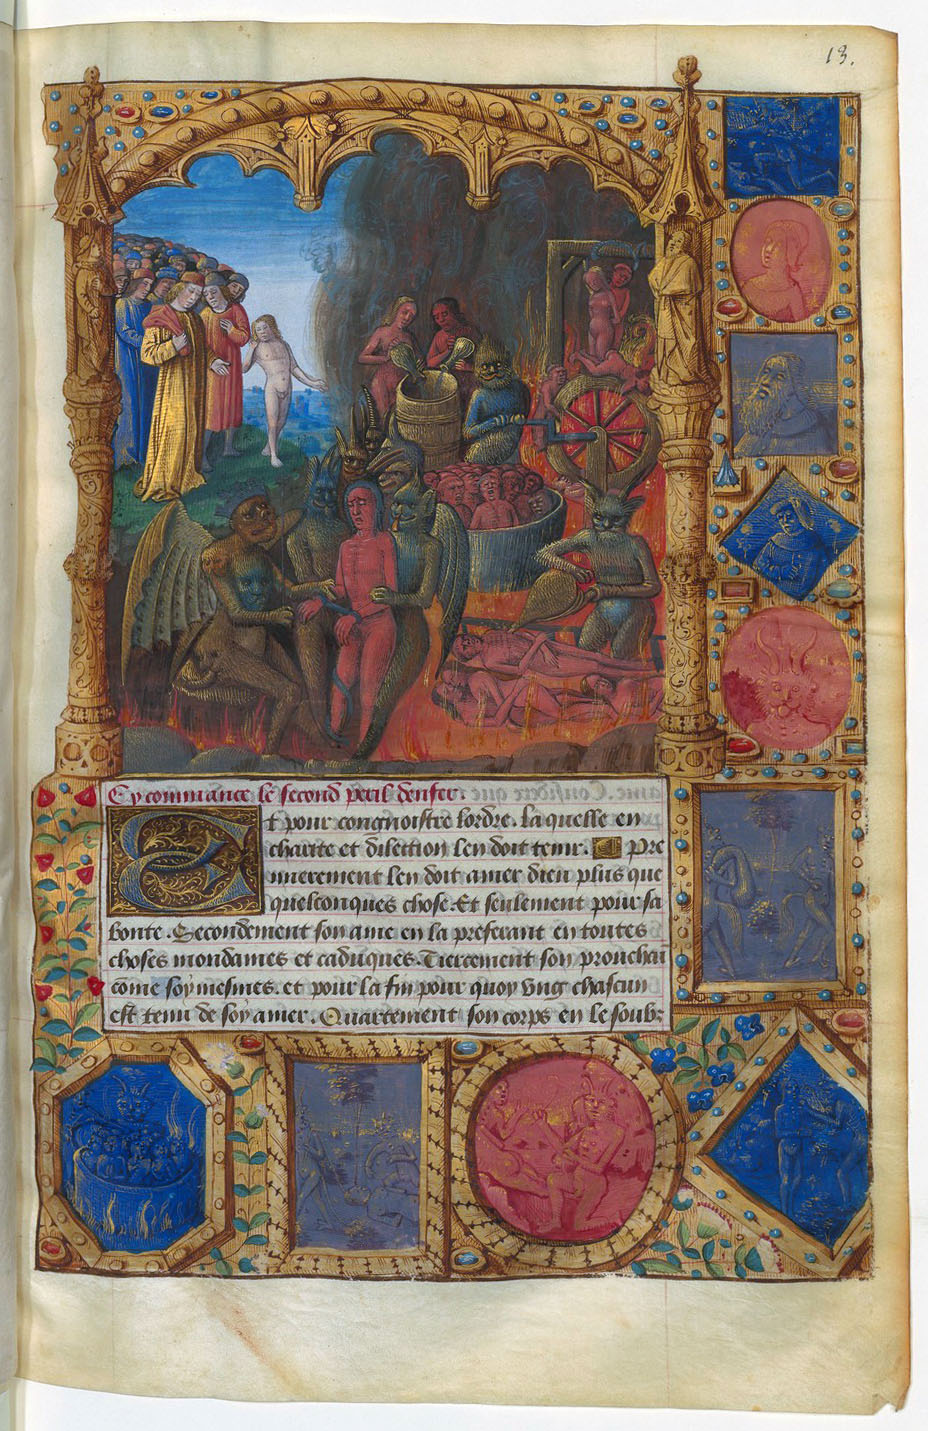 13.
Cy commance le second peril denfer.
Et pour congnoistre lordre. la quelle en
charite et dilection len doit tenir. Pre
mierement len doit amer dieu plus que
quelconques chose. Et seulement pour sa
bonte. Secondement son ame en la preferant en toutes
choses mondaines et caduques. Tiercement son prouchain
come soy mesmes. et pour la fin pour quoy vng chascun
est tenu de soy amer. Quartement son corps en le soubz